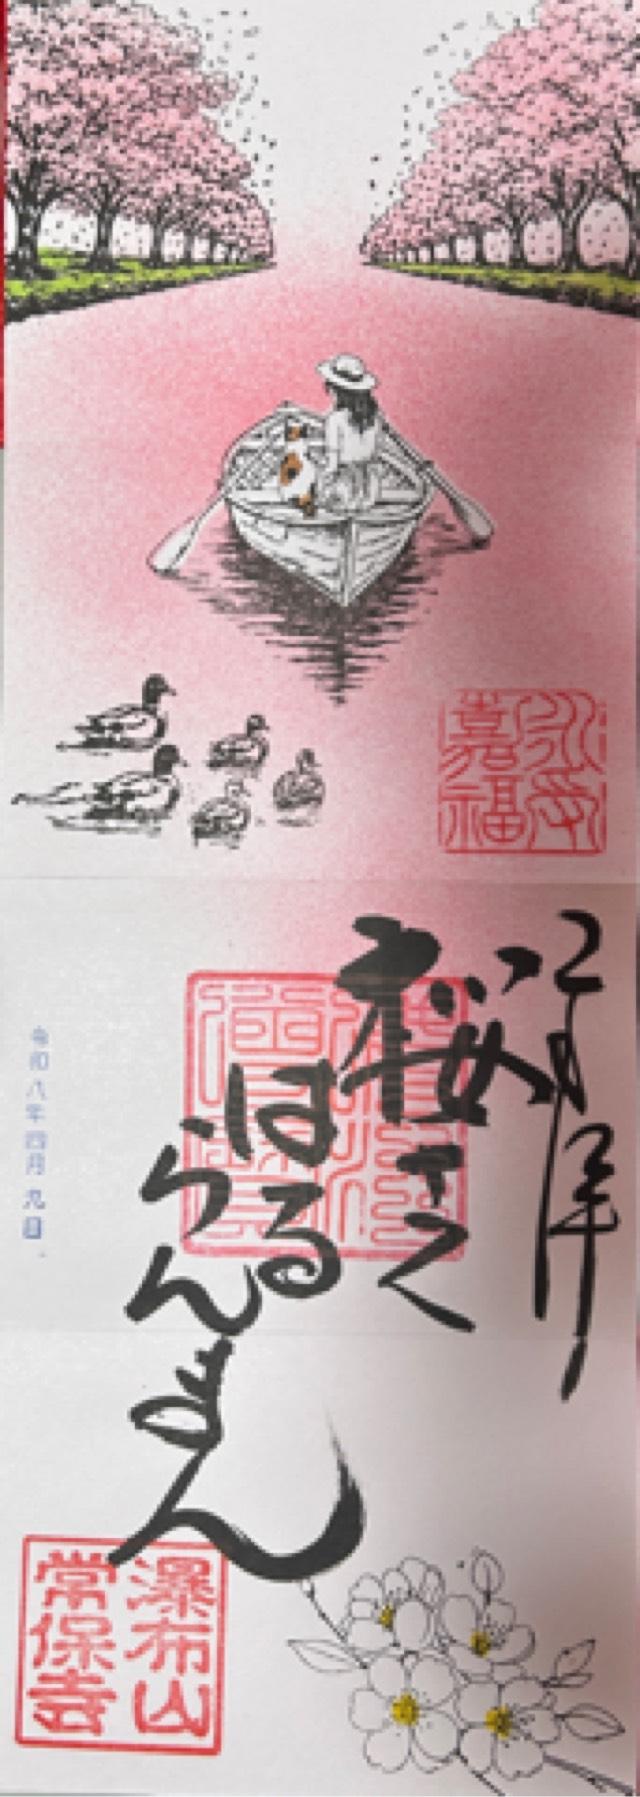 永受
嘉福
桜さく
はる
らんまん
令和八年四月九日
瀑布山
常保寺